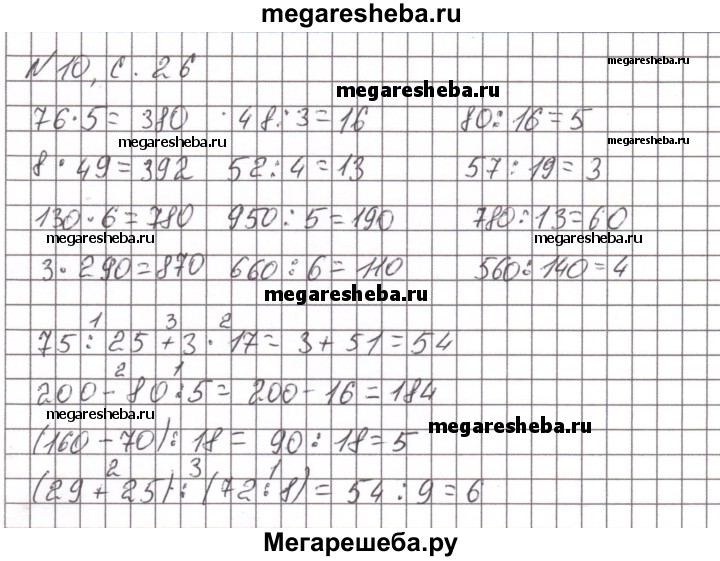 megaresheba.ru
N 10, с. 26
megaresheba.ru
megaresheba.ru
76·5= 380 · 48:3=16 80:16=5
megaresheba.ru
megaresheba.ru
8·49=392 52:4=13 57:19=3
130·6=780 950:5=190 780:13=60
megaresheba.ru
megaresheba.ru
3·290=870 660:6=110 560:140=4
megaresheba.ru
1 3 2
75:25+3·17= 3+51=54
2 1
200-80:5= 200-16=184
megaresheba.ru
megaresheba.ru
(160-70):18= 90:18=5
2 3 1
(29+25):(72:8)= 54:9=6
Мегарешеба.ру